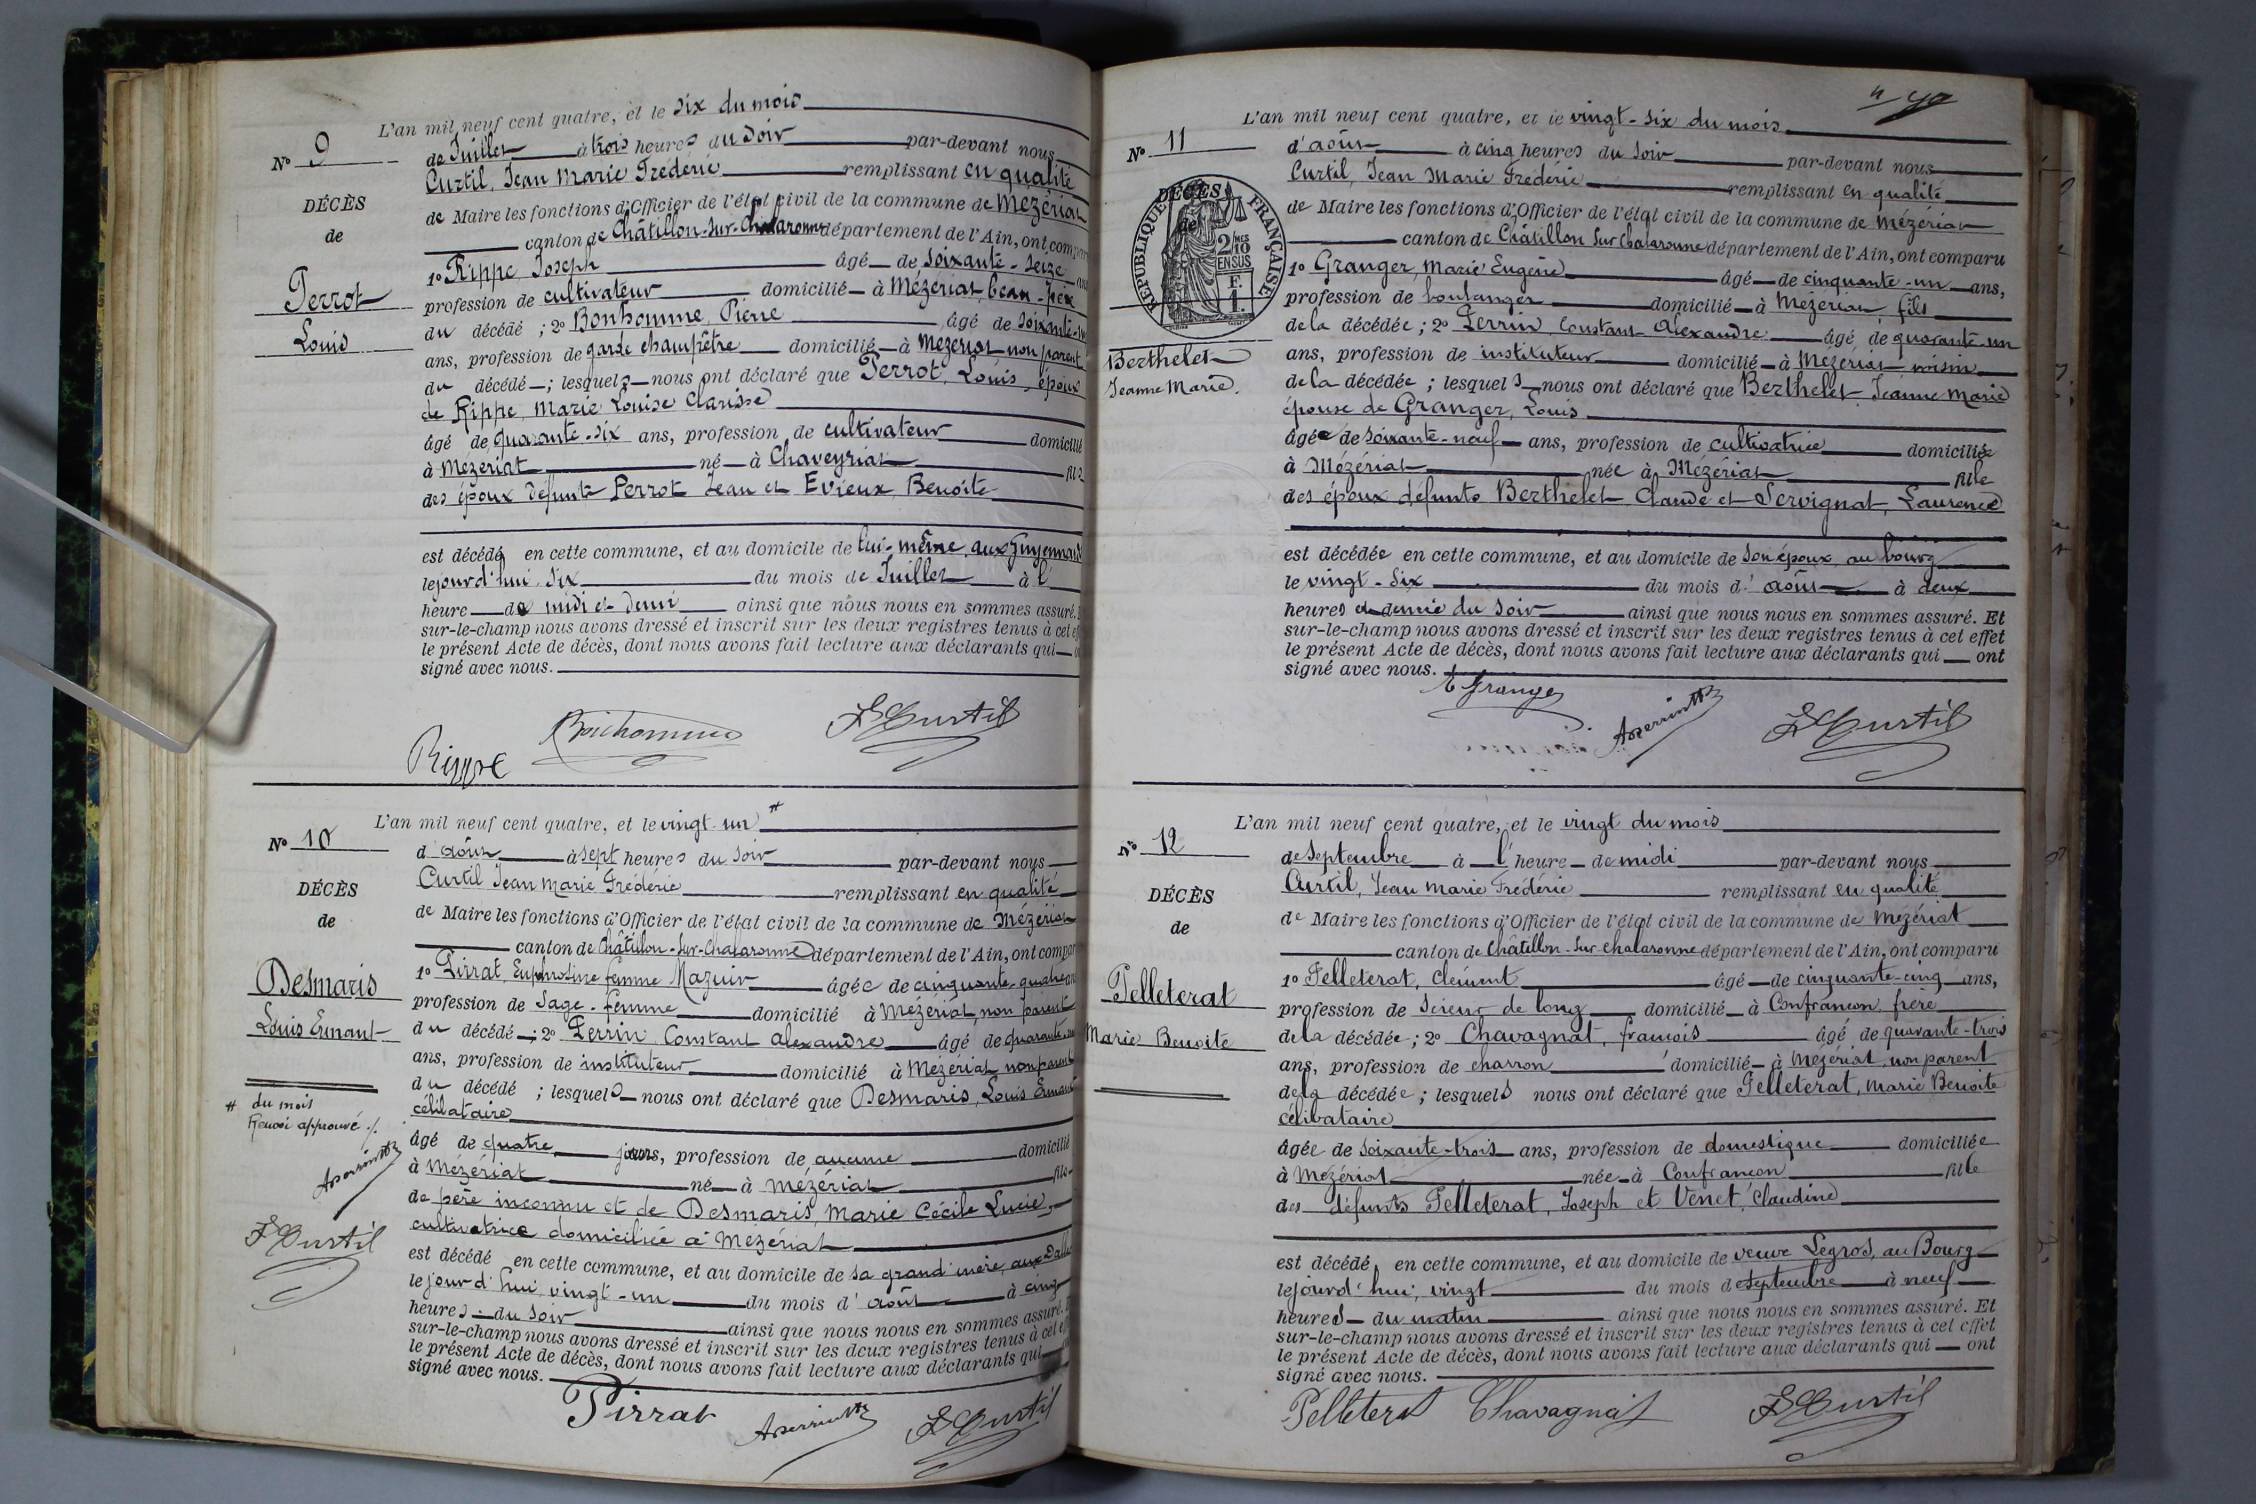 L'an mil neuf cent quatre, et le six du mois
N° 9
de Juillet à trois heures du soir par-devant nous
Curtil, Jean Marie Frédéric remplissant en qualité
DÉCÈS
de Maire les fonctions d'Officier de l'état civil de la commune de Mézériat
de
canton de Châtillon-sur-Chalaronne département de l'Ain, ont compar
1° Rippe, Joseph âgé de soixante-seize ans
Perrot
profession de cultivateur domicilié à Mézériat, beau-père
Louis
du décédé ; 2° Bonhomme, Pierre âgé de soixante-
ans, profession de garde champêtre domicilié à Mézériat non parent
du décédé ; lesquels nous ont déclaré que Perrot, Louis, époux
de Rippe, Marie Louise Clarisse
âgé de quarante-six ans, profession de cultivateur domicilié
à Mézériat né à Chaveyriat fils
des époux défunts Perrot Jean et Evieux Benoîte
est décédé en cette commune, et au domicile de lui-même, aux Guyennards
le jourd'hui six du mois de Juillet à l'
heure de midi et demi ainsi que nous nous en sommes assuré.
sur-le-champ nous avons dressé et inscrit sur les deux registres tenus à cet ef
le présent Acte de décès, dont nous avons fait lecture aux déclarants qui
signé avec nous.
Rippe Bonhomme F Curtil
L'an mil neuf cent quatre, et le vingt-un #
N° 10
d'août à sept heures du soir par-devant nous
Curtil Jean Marie Frédéric remplissant en qualité
DÉCÈS
de Maire les fonctions d'Officier de l'état civil de la commune de Mézériat
de
canton de Châtillon-sur-Chalaronne département de l'Ain, ont compar
Desmaris
1° Pirrat, Euphrosine femme Mazuir âgée de cinquante-quatre ans
profession de Sage-femme domicilié à Mézériat, non parente
Louis Ernant
du décédé ; 2° Perrin Constant Alexandre âgé de quarante-un
ans, profession de instituteur domicilié à Mézériat non parent
du décédé ; lesquels nous ont déclaré que Desmaris, Louis Ernant
célibataire
# du mois
Renvoi approuvé
APerrin
F Curtil
âgé de quatre jours, profession de aucune domicilié
à Mézériat né à Mézériat fils
de père inconnu et de Desmaris, Marie Cécile Lucie,
cultivatrice domiciliée à Mézériat
est décédé en cette commune, et au domicile de sa grand'mère, aux Dalles
le jourd'hui vingt-un du mois d'août à cinq
heures du soir ainsi que nous nous en sommes assuré.
sur-le-champ nous avons dressé et inscrit sur les deux registres tenus à cet ef
le présent Acte de décès, dont nous avons fait lecture aux déclarants qui
signé avec nous.
Pirrat APerrin F Curtil
L'an mil neuf cent quatre, et le vingt-six du mois
N° 11
d'août à cinq heures du soir par-devant nous
Curtil, Jean Marie Frédéric remplissant en qualité
DÉCÈS
de
RÉPUBLIQUE FRANÇAISE
2/10MES
EN SUS
F.
1.
de Maire les fonctions d'Officier de l'état civil de la commune de Mézériat
canton de Châtillon sur Chalaronne département de l'Ain, ont comparu
1° Granger, Marie Eugène âgé de cinquante-un ans,
profession de boulanger domicilié à Mézériat, fils
de la décédée ; 2° Perrin, Constant Alexandre âgé de quarante-un
Berthelet
Jeanne Marie.
ans, profession de instituteur domicilié à Mézériat voisin
de la décédée ; lesquels nous ont déclaré que Berthelet Jeanne Marie
épouse de Granger, Louis
âgée de soixante-neuf ans, profession de cultivatrice domiciliée
à Mézériat née à Mézériat fille
des époux défunts Berthelet Claude et Servignat, Laurence
est décédée en cette commune, et au domicile de son époux, au bourg
le vingt-six du mois d'août à deux
heures et demie du soir ainsi que nous nous en sommes assuré. Et
sur-le-champ nous avons dressé et inscrit sur les deux registres tenus à cet effet
le présent Acte de décès, dont nous avons fait lecture aux déclarants qui ont
signé avec nous.
Granger APerrin F Curtil
L'an mil neuf cent quatre, et le vingt du mois
N° 12
de Septembre à l'heure de midi par-devant nous
Curtil, Jean Marie Frédéric remplissant en qualité
DÉCÈS
de Maire les fonctions d'Officier de l'état civil de la commune de Mézériat
de
canton de Châtillon-sur-Chalaronne département de l'Ain, ont comparu
Pelleterat
1° Pelleterat, Clément âgé de cinquante-cinq ans,
profession de Scieur de long domicilié à Confrançon, frère
Marie Benoite
de la décédée ; 2° Chavagnat, françois âgé de quarante-trois
ans, profession de charron domicilié à Mézériat non parent
de la décédée ; lesquels nous ont déclaré que Pelleterat, Marie Benoite
célibataire
âgée de soixante-trois ans, profession de domestique domiciliée
à Mézériat née à Confrançon fille
des défunts Pelleterat, Joseph et Venet, Claudine
est décédé en cette commune, et au domicile de veuve Legros, au Bourg
le jourd'hui, vingt du mois de septembre à neuf
heures du matin ainsi que nous nous en sommes assuré. Et
sur-le-champ nous avons dressé et inscrit sur les deux registres tenus à cet effet
le présent Acte de décès, dont nous avons fait lecture aux déclarants qui ont
signé avec nous.
Pelleterat Chavagnat F Curtil